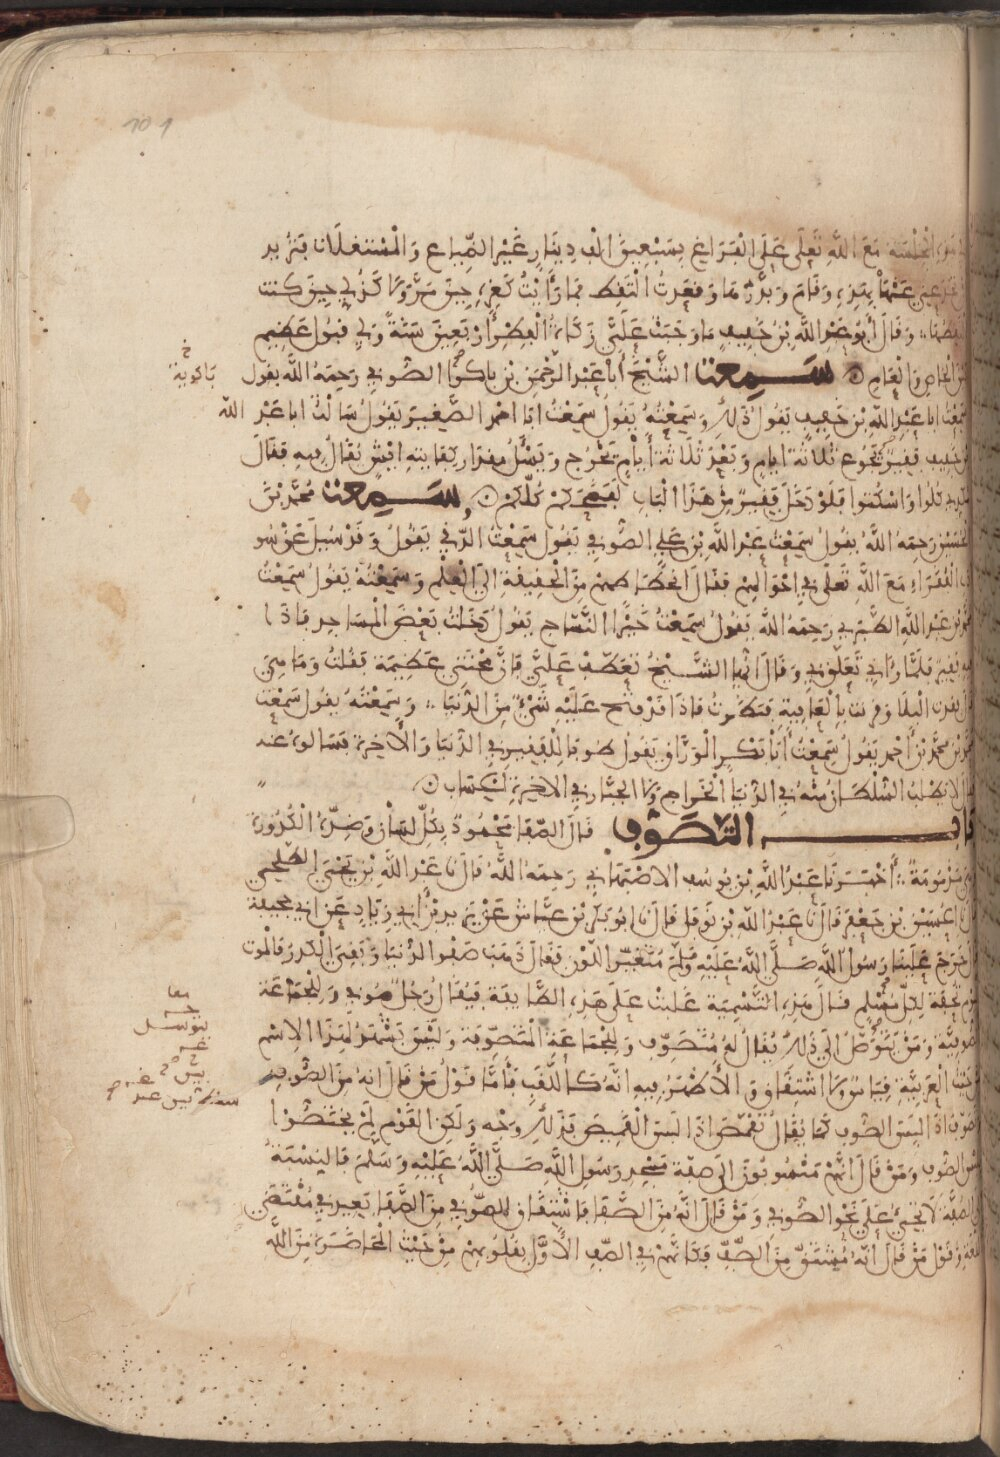 101
الجلسة مع الله تعلى على الفراغ بسبعين الف دينار غير الضياع والمستغلات فنزيد
عنها بمنزه وقام وبددها وقعدت التقط فما رأيت كعزه حين مر وما كذلي حين كنت
وقال أبو عبد الله بن خفيف ما وجبت علي زكاة الفطر أربعين سنة ولي قبول عظيم
الخاص والعام سمعت الشيخ أبا عبد الرحمن بن باكوا الصوفي رحمه الله يقول
باكوية
سمعت ابا عبد الله بن خفيف يقول ذلك وسمعته يقول سمعت ابا احمد الصغير يقول سألت ابا عبد الله
بن خفيف فقير يجوع ثلاثة ايام وبعد ثلاثة أيام يخرج ويسئل مقدار كفايته ايش يقال فيه فقال
كلوا واسكتوا فلو دخل فقير من هذا الباب لفضحكم كلكم وسمعت محمد بن
الحسين رحمه الله يقول سمعت عبد الله بن علي الصوفي يقول سمعت الدقي يقول وقد سئل عن سو
الفقراء مع الله تعلى في احوالهم فقال انحطاطهم من الحقيقة الى العلم وسمعته يقول سمعت
محمد بن عبد الله الطبري رحمه الله يقول سمعت خيرا النساج يقول دخلت بعض المساجد فاذا
فيه فقير فلما رآني تعلق بي وقال ايها الشيخ تعطف علي فان محنتي عظيمة فقلت وما هي
فقال فقدت البلا وقرنت بالعافية فنظرت فاذا قد فتح عليه شيء من الدنيا وسمعته يقول سمعت
محمد بن محمد بن أحمد يقول سمعت أبا بكر الوراق يقول طوبا للفقير في الدنيا والآخرة فسالوه عنه
فقال لا يطلب السلطان منه في الدنيا الخراج ولا الجبار في الآخرة الحساب
باب التصوف قال الصفا محمود بكل لسان وضده الكدورة
وهي مذمومة أخبرنا عبد الله بن يوسف الاصبهاني رحمه الله قال نا عبد الله بن يحيى الطلحي
قال نا الحسين بن جعفر قال نا عبد الله بن نوفل قال نا ابو بكر بن عياش عن يزيد بن أبي زياد عن ابي جحيفة
قال خرج علينا رسول الله صلى الله عليه وسلم متغير اللون فقال ذهب صفو الدنيا وبقي الكدر فالموت
اليوم تحفة لكل مسلم قال هذه التسمية غلبت على هذه الطايفة فيقال رجل صوفي وللجماعة
صوفية ومن يتوصل الى ذلك يقال له متصوف وللجماعة المتصوفة وليس يشهد لهذا الاسم
من حيث العربية قياس ولا اشتقاق والأظهر فيه انه كاللقب فأما قول من قال انه من الصوف
وتصوف اذا لبس الصوف كما يقال تقمص اذا لبس القميص فذلك وجه ولكن القوم لم يختصوا
بلبس الصوف ومن قال انهم منسوبون الى صفة مسجد رسول الله صلى الله عليه وسلم فالنسبة
الى الصفة لا تجيء على نحو الصوفي ومن قال انه من الصفا فاشتقاق الصوفي من الصفا بعيد في مقتضى
اللغة وقول من قال انه مشتق من الصف فكأنهم في الصف الأول بقلوبهم من حيث المحاضرة من الله